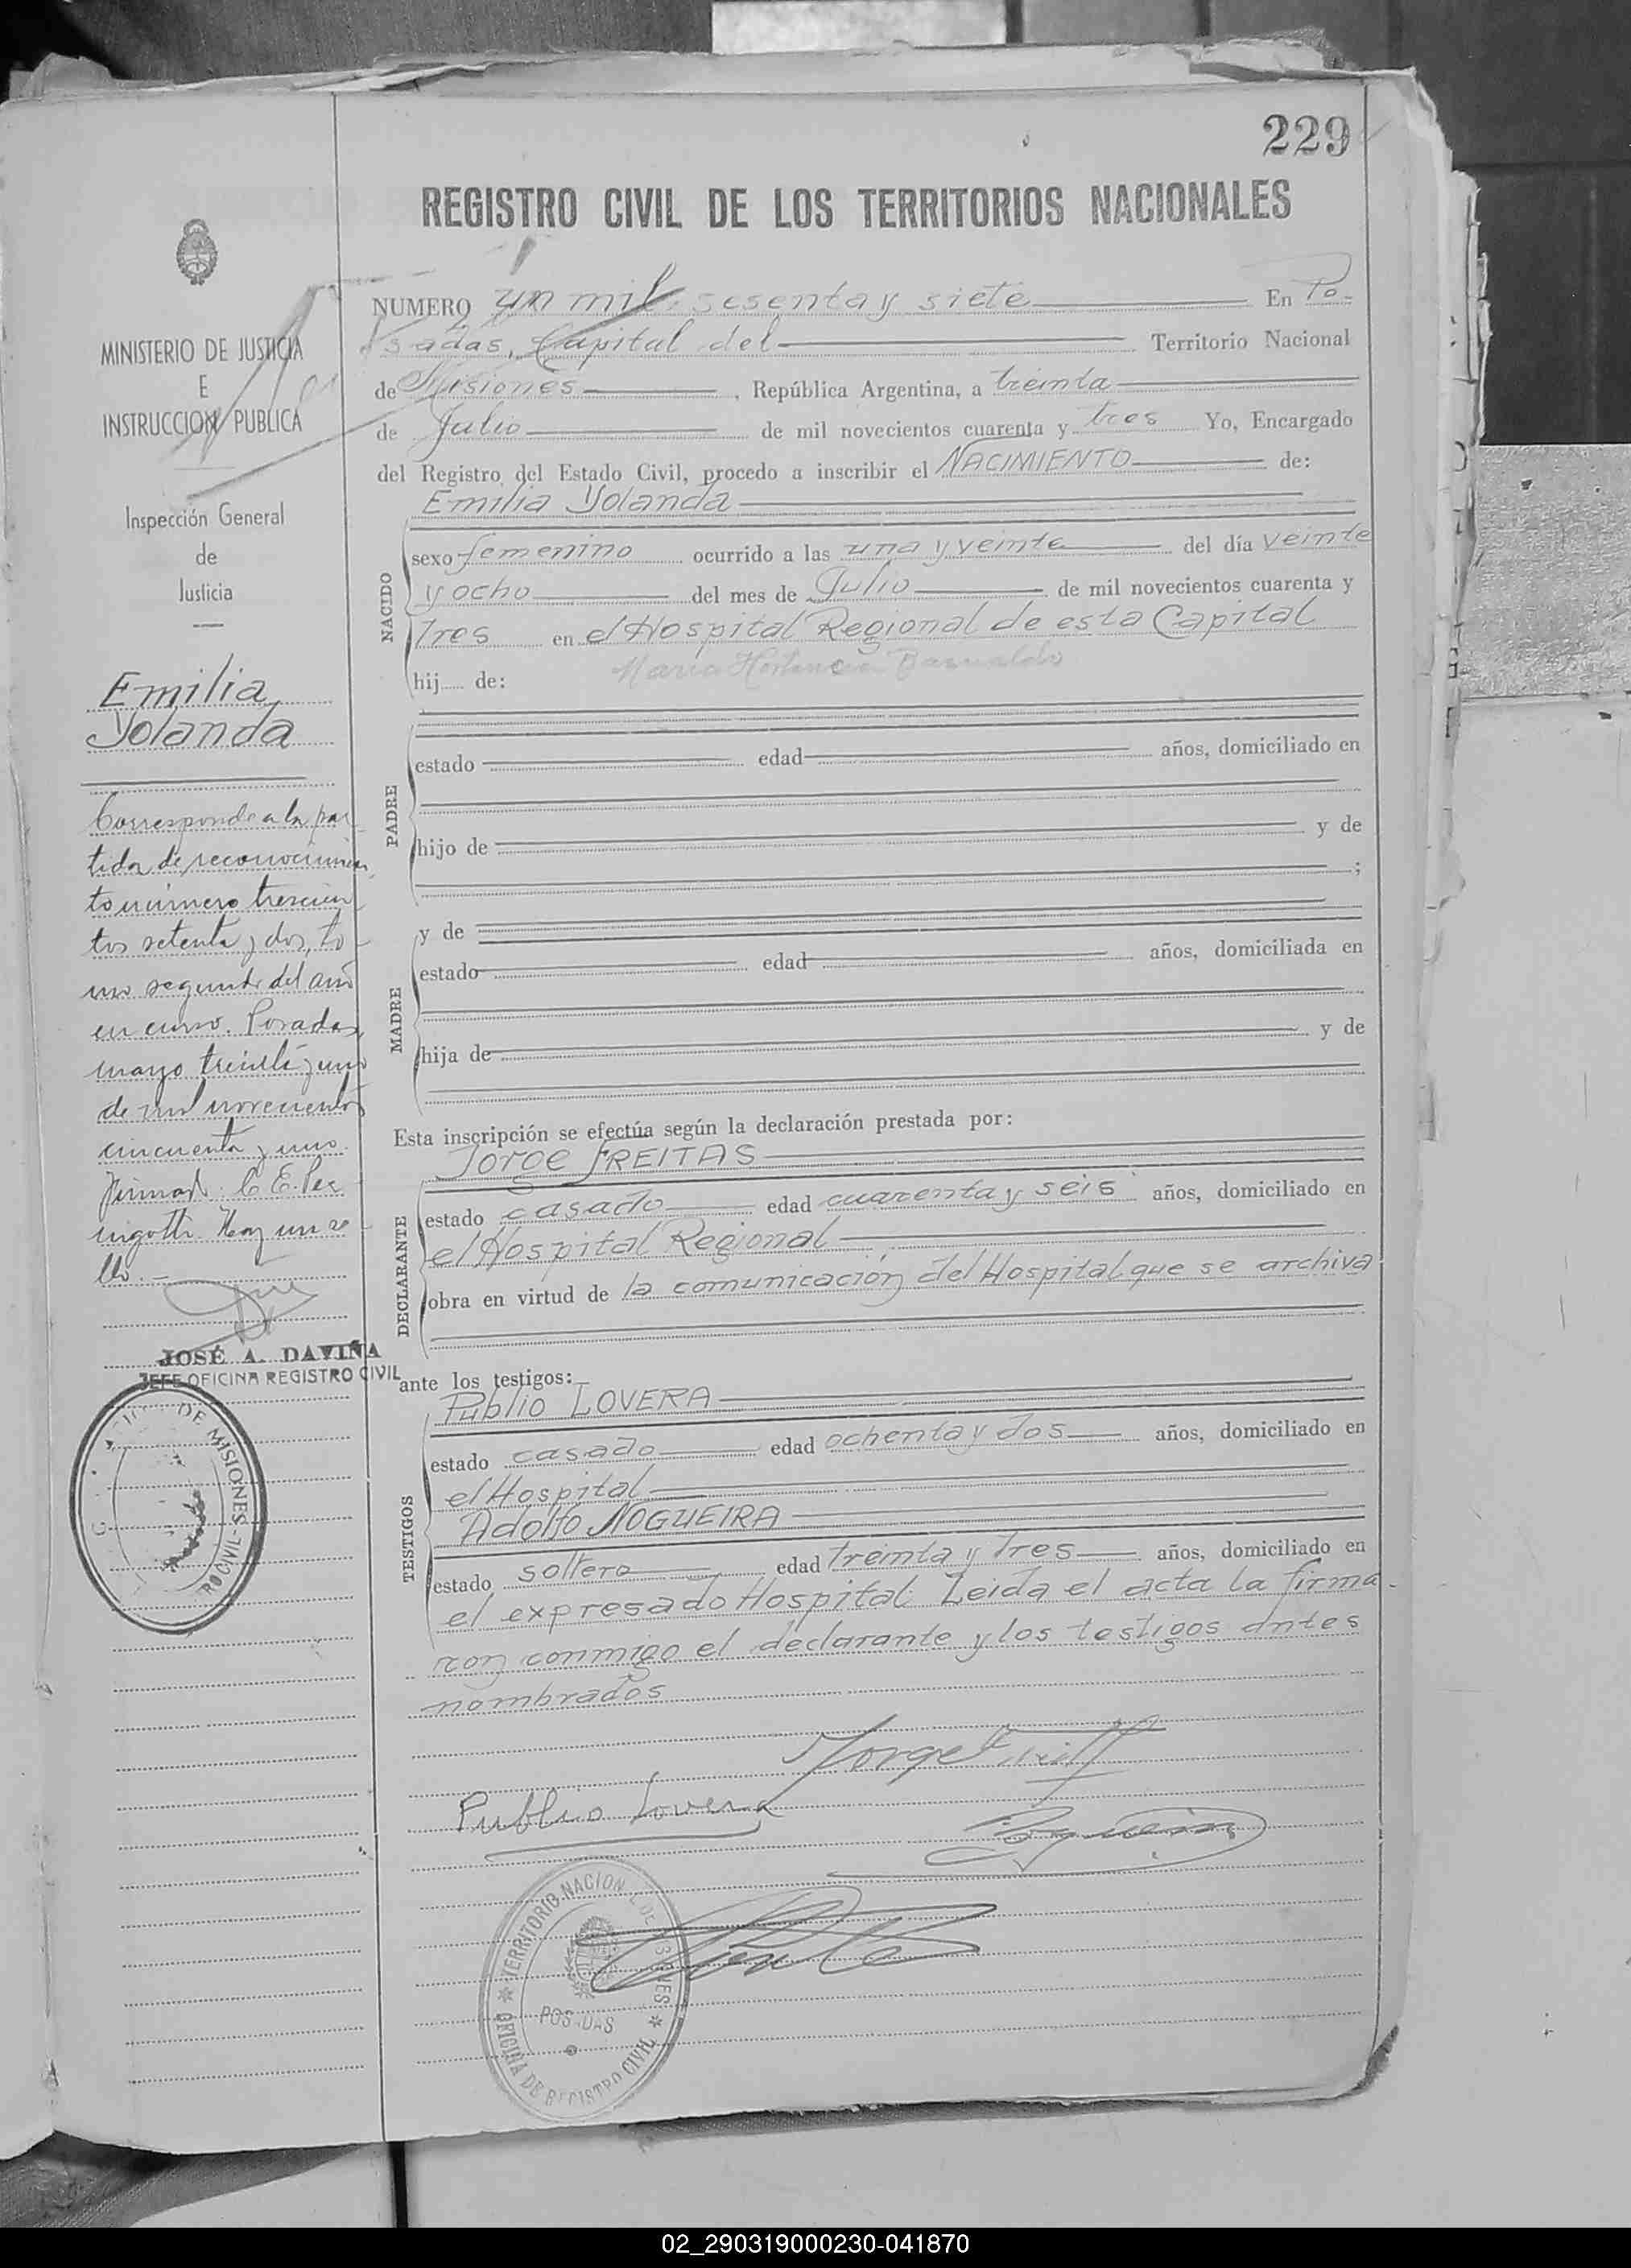 229
REGISTRO CIVIL DE LOS TERRITORIOS NACIONALES
MINISTERIO DE JUSTICIA
E
INSTRUCCION PUBLICA
Inspección General
de
Justicia
Emilia
Yolanda
Corresponde a la par
tida de reconocimien
to número trescien
tos setenta y dos, to
mo segundo del año
en curso. Posadas,
mayo treinta y uno
de mil novecientos
cincuenta y uno.
Firmado: C. E.
Hay un se
llo.-
JOSÉ A. DAVIÑA
JEFE OFICINA REGISTRO CIVIL
DE MISIONES - CIVIL
NUMERO un mil sesenta y siete En Po-
sadas, Capital del Territorio Nacional
de Misiones, República Argentina, a treinta
de Julio de mil novecientos cuarenta y tres Yo, Encargado
del Registro del Estado Civil, procedo a inscribir el NACIMIENTO de:
NACIDO
Emilia Yolanda
sexo femenino ocurrido a las una y veinte del día veinte
y ocho del mes de Julio de mil novecientos cuarenta y
Tres en el Hospital Regional de esta Capital
hij de: Maria Hortencia Basualdo
PADRE
estado edad años, domiciliado en
hijo de y de
;
MADRE
y de
estado edad años, domiciliada en
hija de y de
Esta inscripción se efectúa según la declaración prestada por:
DECLARANTE
Jorge FREITAS
estado casado edad cuarenta y seis años, domiciliado en
el Hospital Regional
obra en virtud de la comunicación del Hospital que se archiva
ante los testigos:
TESTIGOS
Publio LOVERA
estado casado edad ochenta y dos años, domiciliado en
el Hospital
Adolfo NOGUEIRA
estado soltero edad treinta y Tres años, domiciliado en
el expresado Hospital. Leida el acta la firma-
ron conmigo el declarante y los testigos antes
nombrados
Jorge
Publio Lovera
TERRITORIO NACIONAL DE MISIONES
POSADAS
OFICINA DE REGISTRO CIVIL
02_290319000230-041870